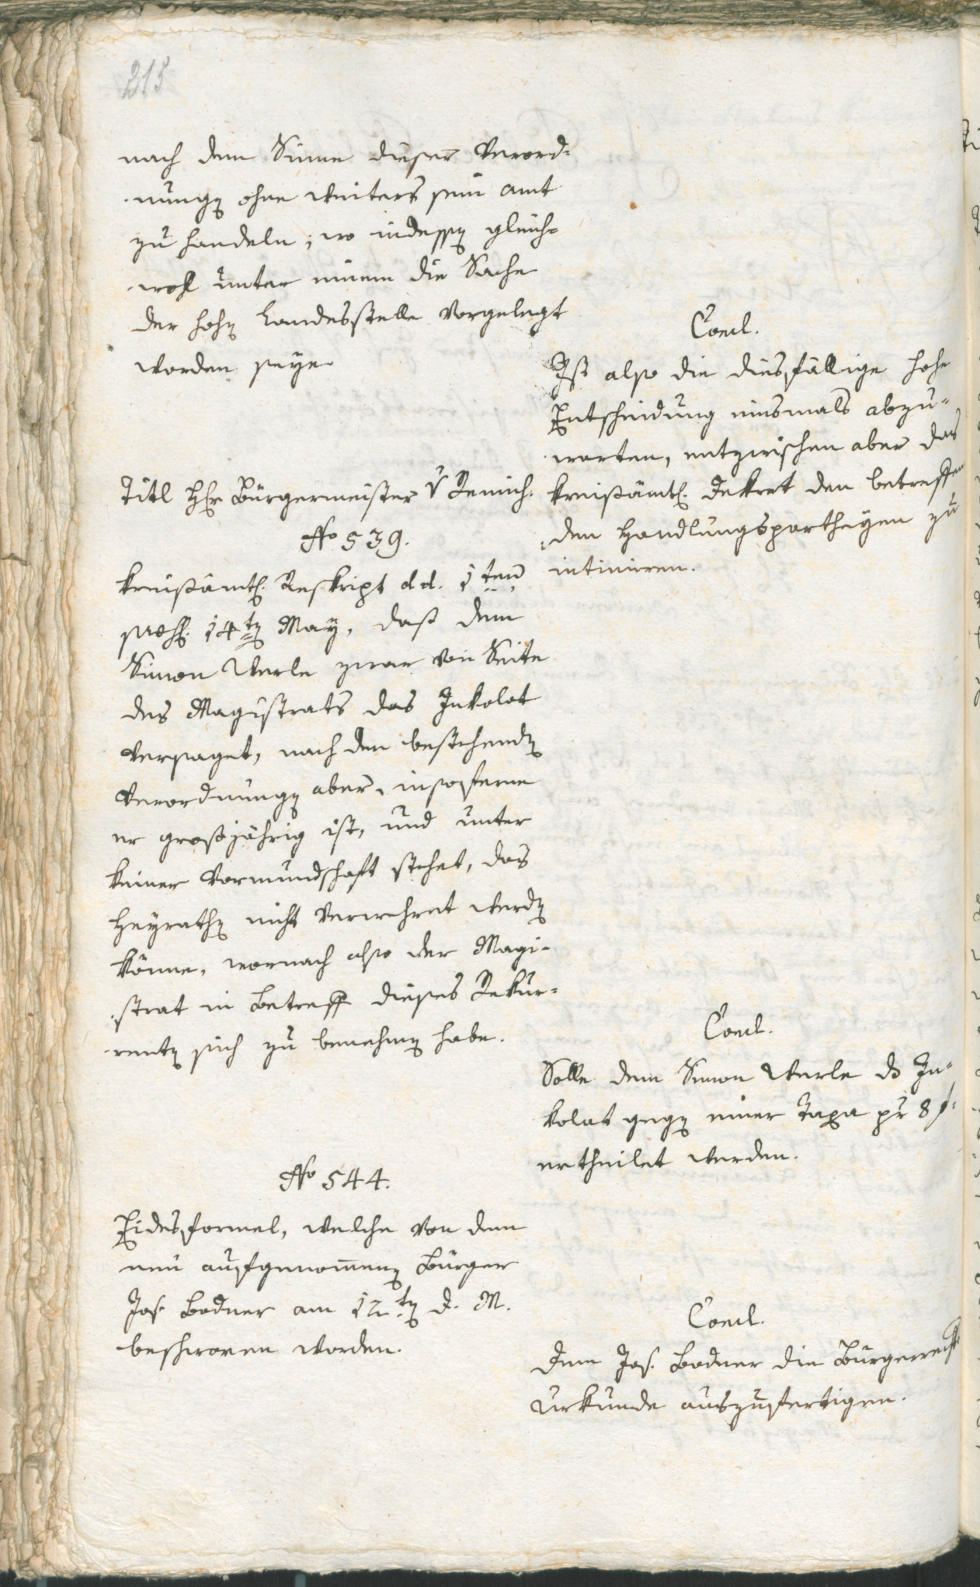 215
nach dem Sinne dieser Verord-
nungen ohne weiters sein Amt
zu handeln; wo indessen gleich-
wohl unter einem die Sache
der hohen Landesstelle vorgelegt
worden seye.
Concl.
Ist also die diesfällige hohe
Entscheidung einsmals abzu-
warten, entzwischen aber das
kreisämtl. Dekret den betreffen
den Handlungspartheyen zu
intimiren.
Titl Hr Bürgermeister v Remich.
No 539.
Kreisämtl. Reskript dd. 1ten
praes. 14ten May, daß dem
Simon Werle zwar von Seite
des Magistrats das Inkolat
versaget, nach den bestehenden
Verordnungen aber, insoferne
er großjährig ist, und unter
keiner Vormundschaft stehet, das
Heyrathen nicht verwehret werden
könne, wornach also der Magi-
strat in Betreff dieses Rekur-
renten sich zu benehmen habe.
Concl.
Solle dem Simon Werle ds In-
kolat gegen einer Taxa pr 8 f.
ertheilet werden.
No 544.
Eidesformel, welche von dem
neu aufgenommenen Bürger
Jos. Bodner am 12ten d. M.
beschworen worden.
Concl.
Dem Jos. Bodner die Bürgerrechts
Urkunde auszufertigen.